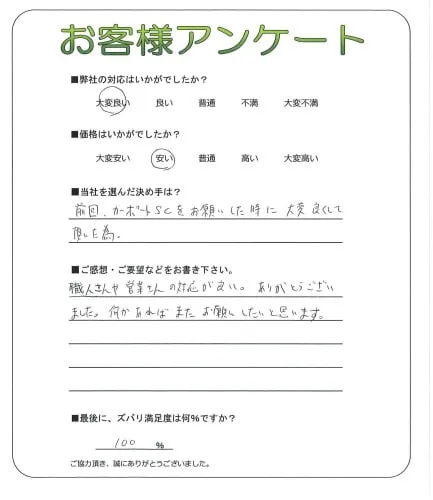 お客様アンケート
■弊社の対応はいかがでしたか？
大変良い 良い 普通 不満 大変不満
■価格はいかがでしたか？
大変安い 安い 普通 高い 大変高い
■当社を選んだ決め手は？
前回、カーポートSCをお願いした時に大変良くして
頂いた為。
■ご感想・ご要望などをお書き下さい。
職人さんや営業さんの対応が良い。ありがとうござい
ました。何かあればまたお願いしたいと思います。
■最後に、ズバリ満足度は何%ですか？
100 %
ご協力頂き、誠にありがとうございました。